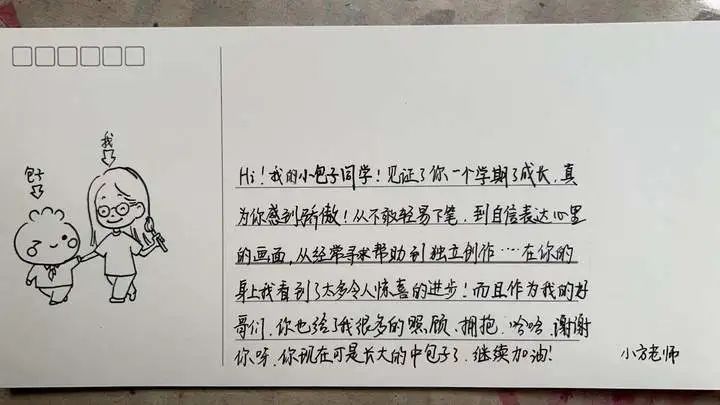 我
包子
Hi！我的小包子同学！见证了你一个学期了成长，真
为你感到骄傲！从不敢轻易下笔，到自信表达心里
的画面，从经常寻求帮助到独立创作……在你的
身上我看到了太多令人惊喜的进步！而且作为我的好
哥们，你也给了我很多的照顾、拥抱，哈哈，谢谢
你呀，你现在可是长大的中包子了，继续加油！
小方老师